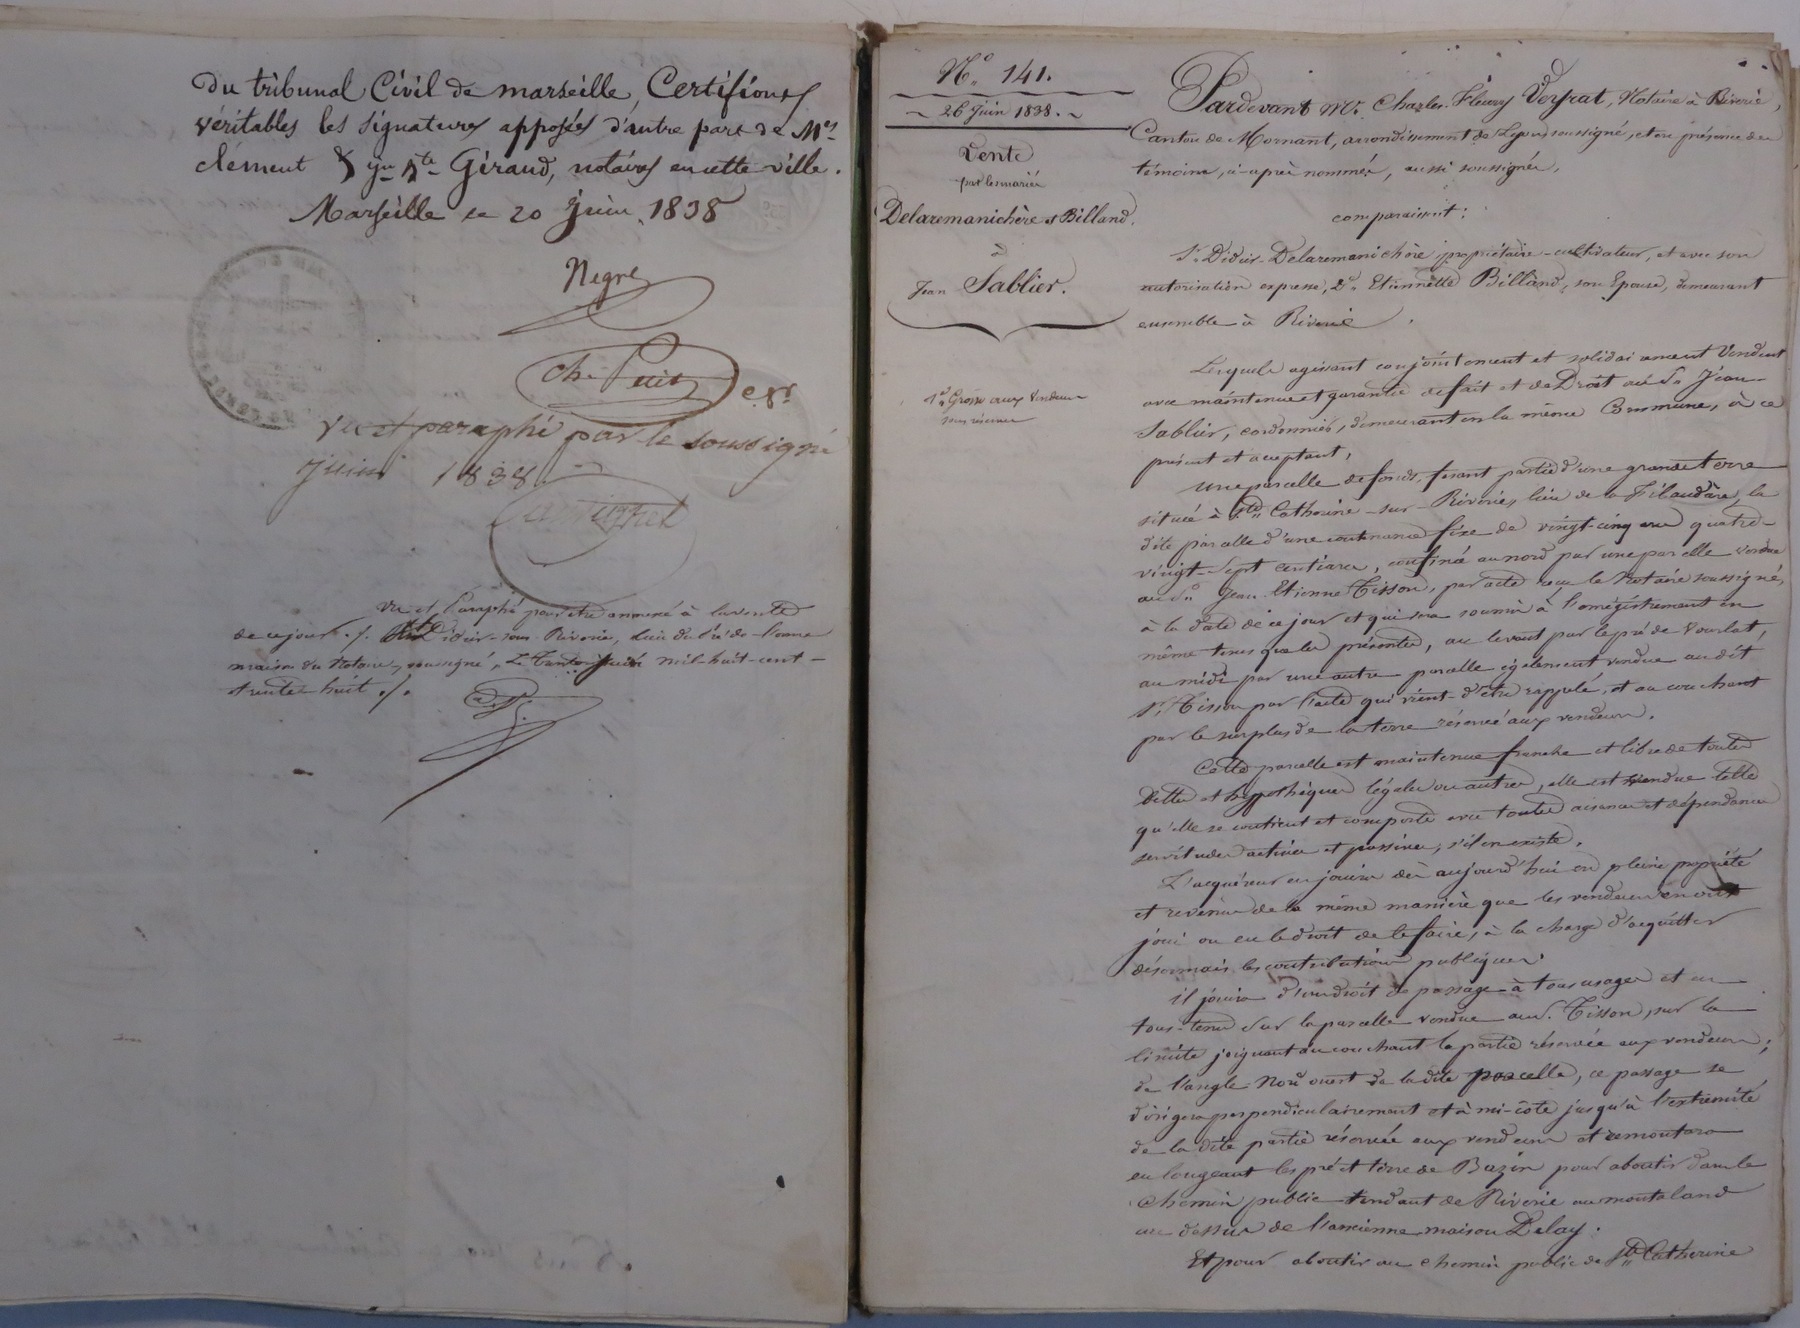 du tribunal Civil de marseille, Certifions
véritables les signatures apposées d'autre part de Mes
clément & Giraud, notaires en cette ville.
Marseille le 20 juin 1838
Negre
Vu et paraphé par le soussigné
juin 1838
Vu et Paraphé pour être annexé à la vente
de ce jour ./. St Didier-sous-Riverie, lieu du Pré de l'orme
maison du Notaire soussigné, Le Trente juin mil huit-cent-
trente huit ./.
N.° 141.
26 Juin 1838.
Vente
par les mariés
Delaremanichère et Billand.
à
Jean Sablier.
1e Grosse aux Vendeurs
Pardevant Me. Charles Fleury Veyrat, Notaire à Riverie,
Canton de Mornant, arrondissement de Lyon soussigné, et en présence des
témoins, ci-après nommés, aussi soussignés,
comparaissent:
Sr. Didier Delaremanichère propriétaire-cultivateur, et avec son
autorisation expresse, De. Etiennette Billand, son Epouse, demeurant
ensemble à Riverie.
Lesquels agissant conjointement et solidairement Vendent
avec maintenue et garantie de fait et de Droit au Sr. Jean
Sablier, cordonnier, demeurant en la même Commune, à ce
présent et acceptant,
une parcelle de fonds, faisant partie d'une grande terre
située à Ste Catherine-sur-Riverie, lieu de la Filaudière, la
dite parcelle d'une contenance fixe de vingt-cinq ares quatre-
vingt-sept centiares, confinée au nord par une parcelle vendue
au Sr. Jean Etienne Tisson, par acte reçu le Notaire soussigné,
à la date de ce jour et qui sera soumis à l'enregistrement en
même tems que les présentes, au levant par le pré de Vourlat,
au midi par une autre parcelle également vendue au dit
Sr. Tisson par l'acte qui vient d'être rappelé, et au couchant
par le surplus de la terre réservée aux vendeurs.
Cette parcelle est maintenue franche et libre de toutes
Dettes et hypothèques légales ou autres, elle est vendue telle
qu'elle se contient et comporte avec toutes aisances et dépendances
servitudes actives et passives, s'il en existe.
L'acquéreur en jouira dès aujourd'hui en pleine propriété
et revenus de la même manière que les vendeurs en ont
joui ou eu le droit de le faire, à la charge d'acquitter
désormais les contributions publiques.
il jouira d'un droit de passage à tous usages et en
tous-tems sur la parcelle vendue au S. Tisson, sur la
limite joignant au couchant la partie réservée aux vendeurs;
de l'angle Nord ouest de la dite parcelle, ce passage se
dirigera perpendiculairement et à mi-côte jusqu'à l'extrémité
de la dite partie réservée aux vendeurs et remontera
en longeant les pré et terre de Bazin pour aboutir dans le
chemin public tendant de Riverie au montaland
au dessus de l'ancienne maison Delay.
Et pour aboutir au chemin public de Ste Catherine